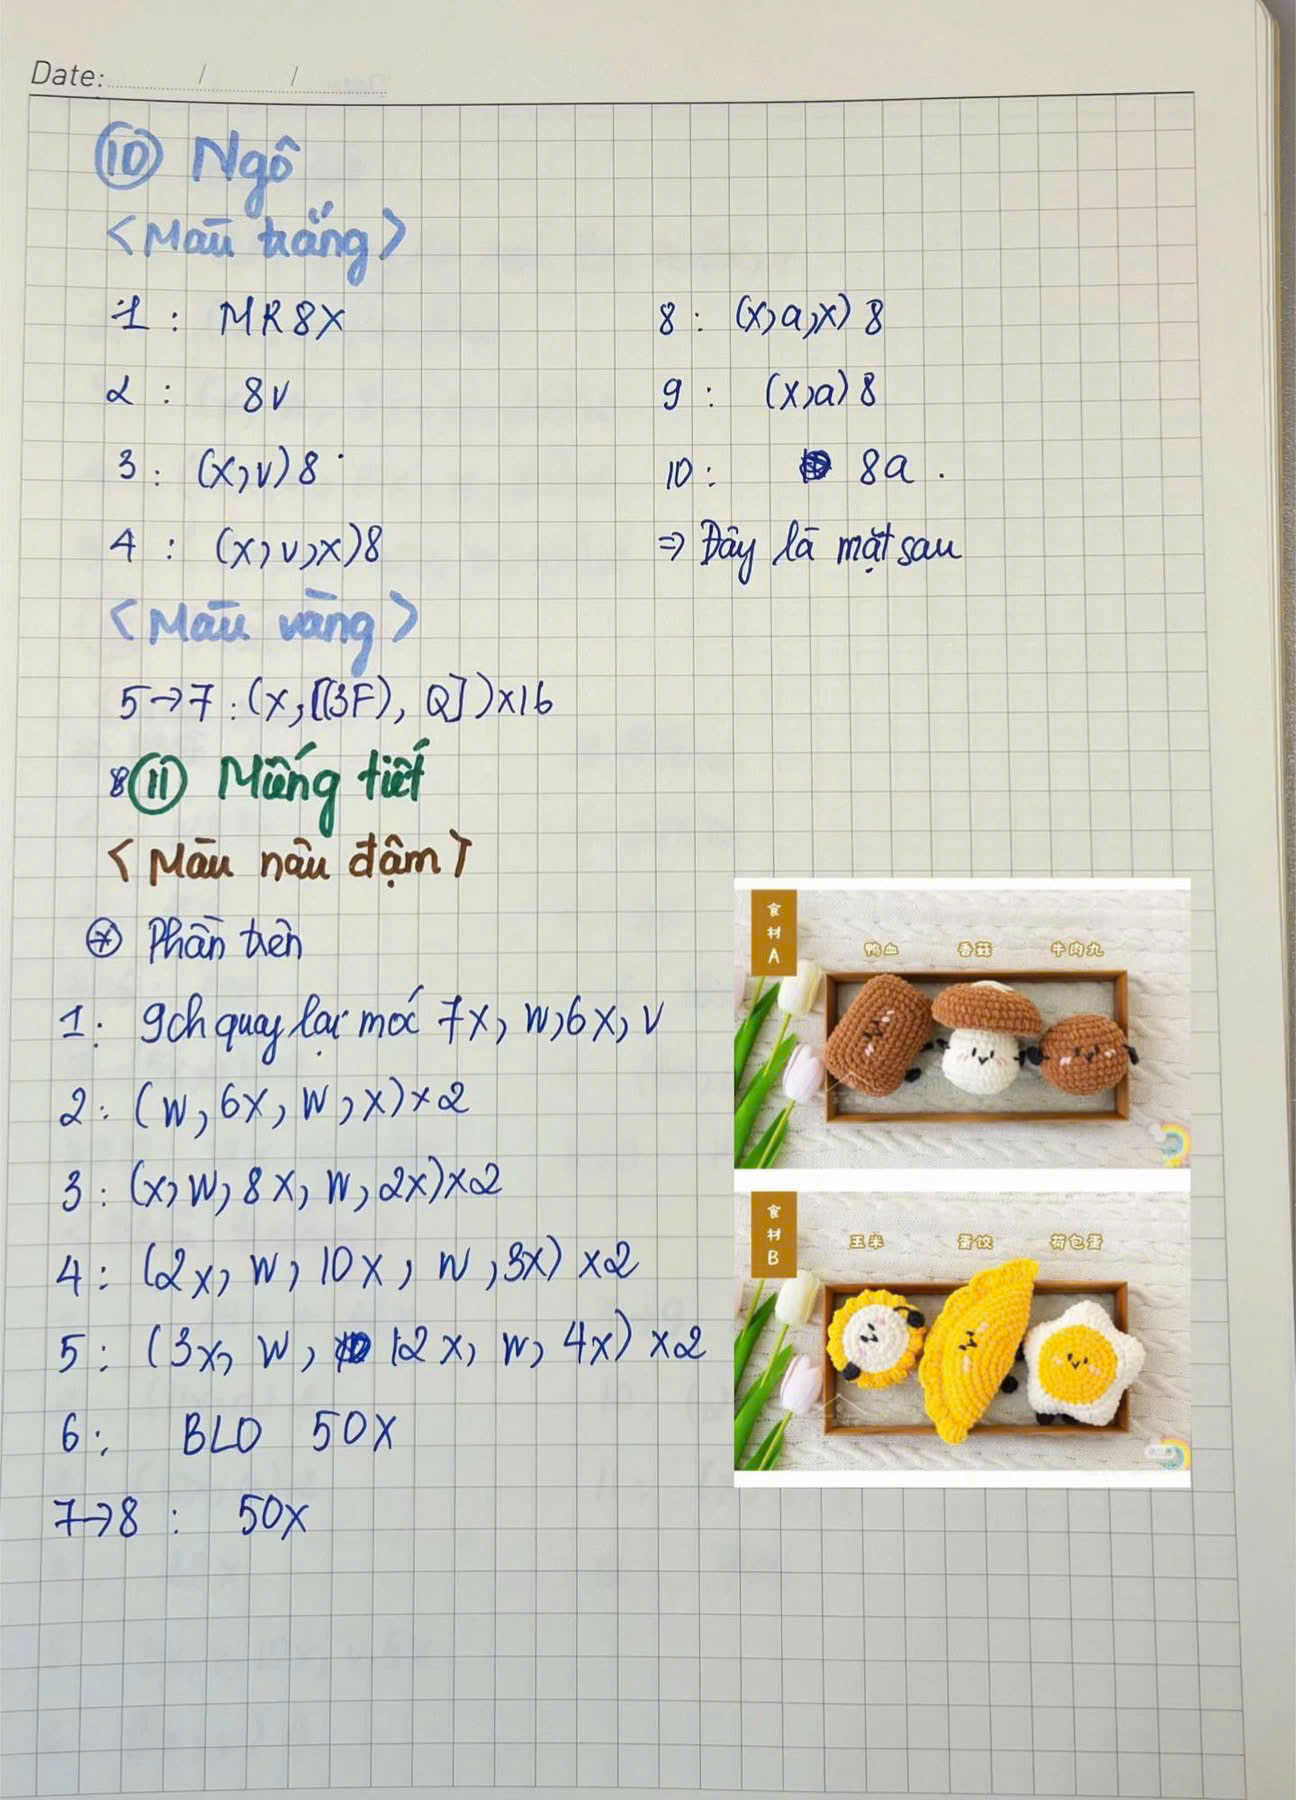 Date: / /
⑩ Ngô
<Màu trắng>
1 : MR8X
2 : 8V
3 : (X, V) 8
4 : (X, V, X) 8
8 : (X, a, X) 8
9 : (X, a) 8
10 : 8a .
⇒ Đây là mặt sau
<Màu vàng>
5→7 : (X, [(3F), Q]) x16
8 ⑪ Miếng tiết
<Màu nâu đậm>
⊛ Phần trên
1 : 9ch quay lại móc 7X, W, 6X, V
2 : (W, 6X, W, X) x 2
3 : (X, W, 8X, W, 2X) x2
4 : (2X, W, 10X, W, 3X) x2
5 : (3X, W, 12X, W, 4X) x2
6 : BLO 50X
7→8 : 50X
食材A
鸭血 香菇 牛肉丸
食材B
玉米 蛋饺 荷包蛋